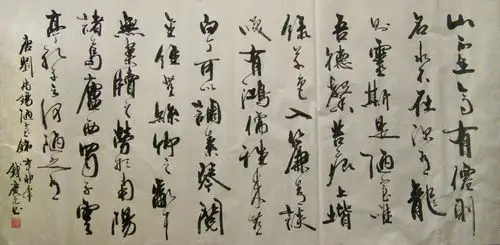 山不在高有僊則
名水不在深有龍
則靈斯是陋室唯
吾德馨苔痕上堦
綠草色入簾青談
咲有鴻儒往来無
白丁可以調素琴閱
金經無絲竹之亂耳
無案牘之勞形南陽
諸葛廬西蜀子雲
亭孔子云何陋之有
唐劉禹錫陋室銘辛卯年
錢慶